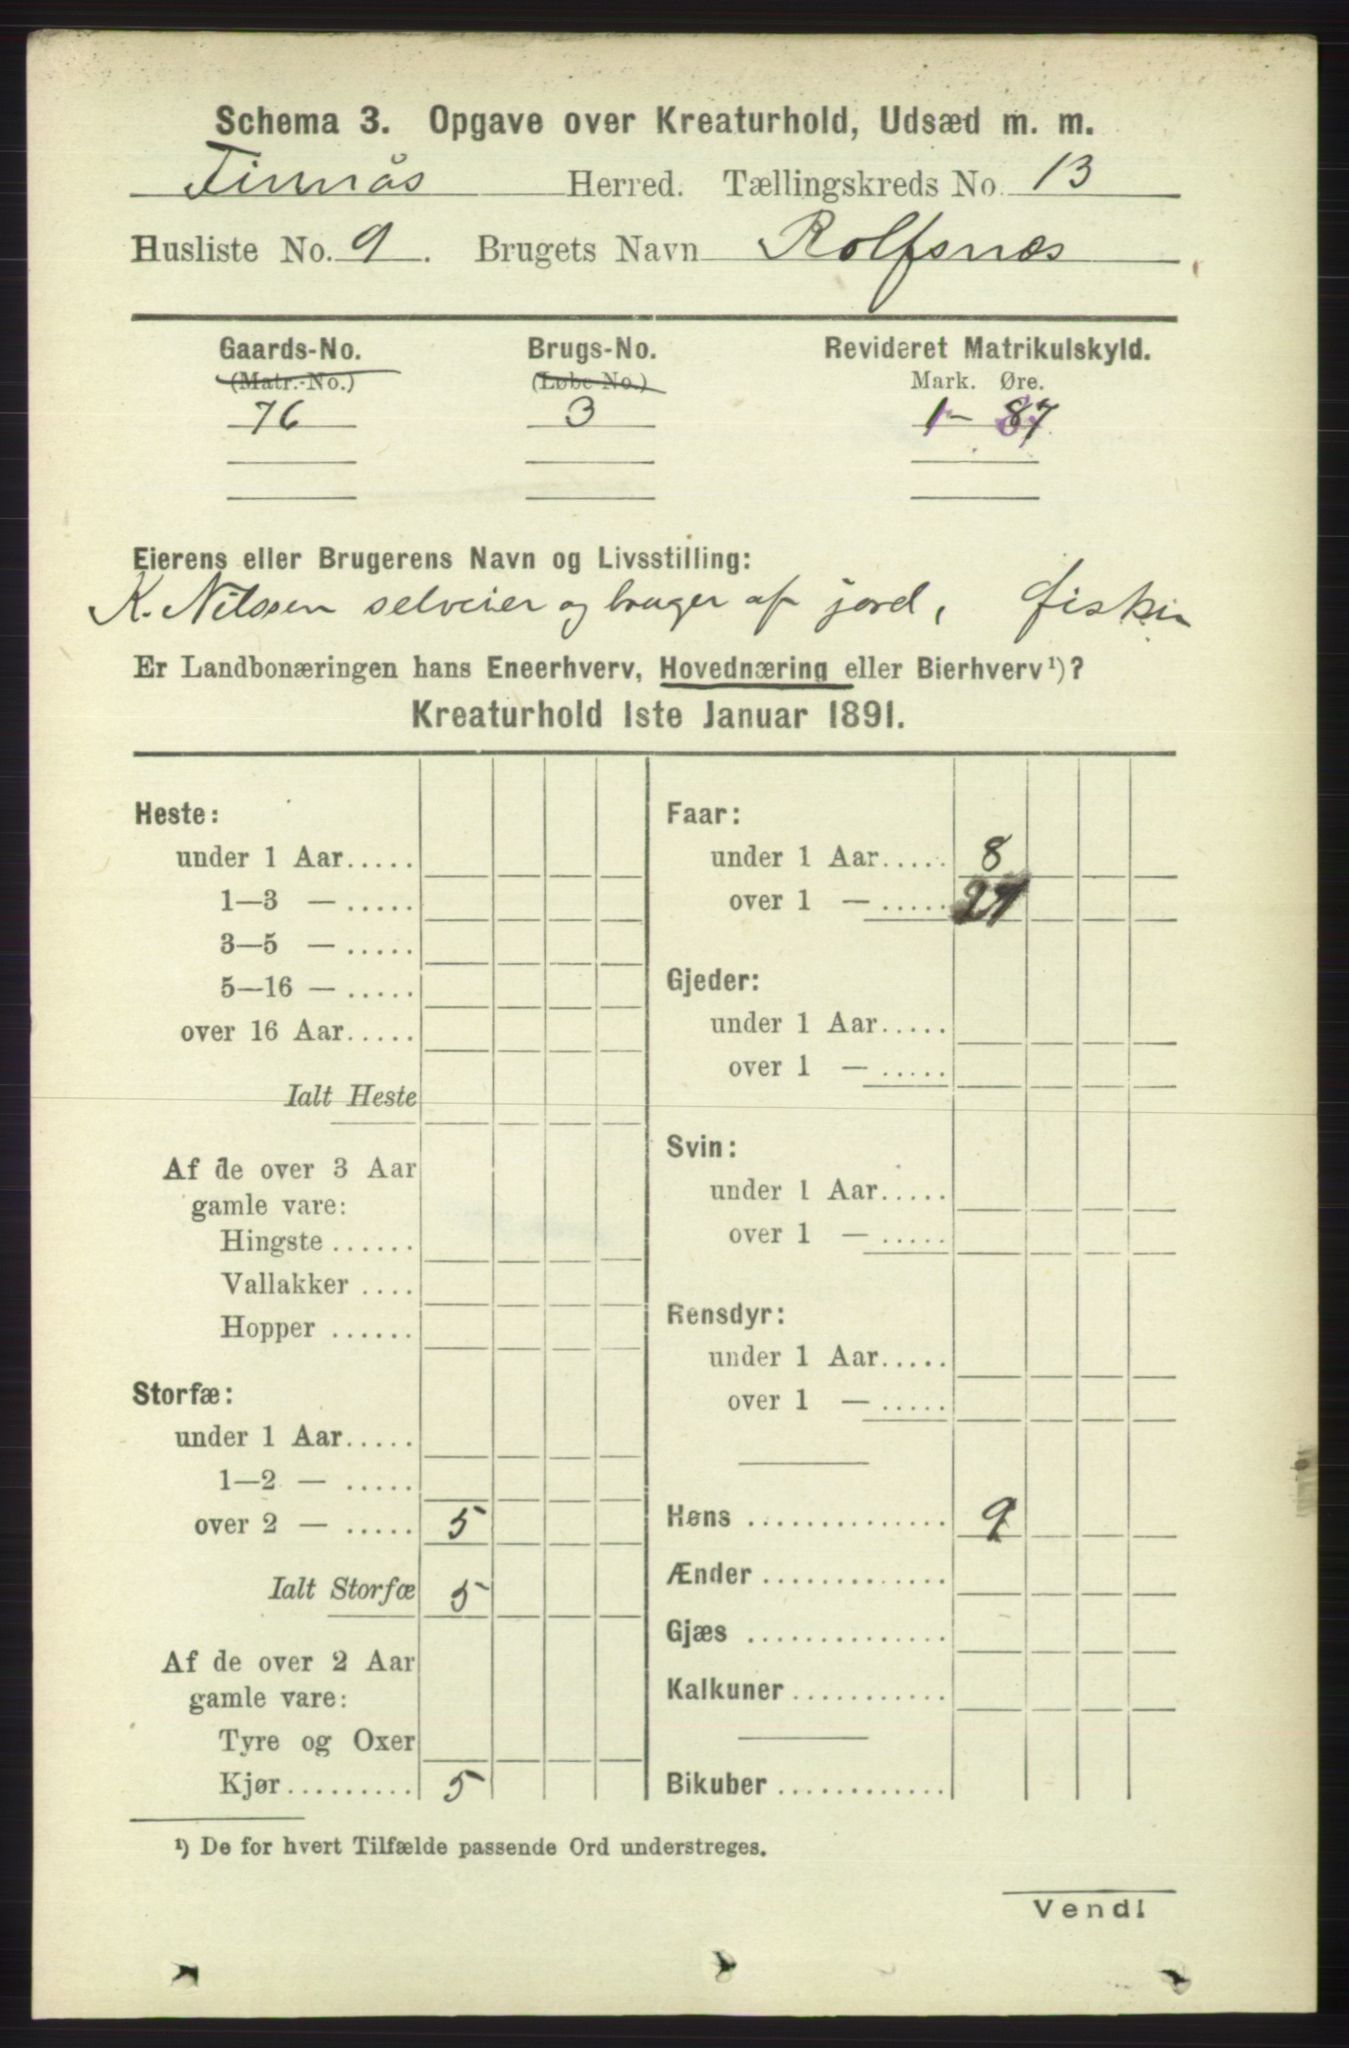 Schema 3. Opgave over Kreaturhold, Udsæd m. m.
Finnås Herred. Tællingskreds No. 13
Husliste No. 9. Brugets Navn Rolfsnæs
Gaards-No. Brugs-No. Revideret Matrikulskyld.
(Matr.-No.) (Løbe-No.) Mark. Øre.
76 3 1 - 87
Eierens eller Brugerens Navn og Livsstilling:
K. Nilssen selveier og bruger af jord, fisker
Er Landbonæringen hans Eneerhverv, Hovednæring eller Bierhverv¹)?
Kreaturhold 1ste Januar 1891.
Heste:
under 1 Aar.....
1—3 — .....
3—5 — .....
5—16 — .....
over 16 Aar.....
Ialt Heste
Af de over 3 Aar
gamle vare:
Hingste ......
Vallakker ....
Hopper ......
Storfæ:
under 1 Aar.....
1—2 — .....
over 2 — ..... 5
Ialt Storfæ 5
Af de over 2 Aar
gamle vare:
Tyre og Oxer
Kjør.......... 5
Faar:
under 1 Aar..... 8
over 1 — .....
Gjeder:
under 1 Aar.....
over 1 — .....
Svin:
under 1 Aar.....
over 1 — .....
Rensdyr:
under 1 Aar.....
over 1 — .....
Høns .............. 9
Ænder .............
Gjæs ..............
Kalkuner...........
Bikuber ............
¹) De for hvert Tilfælde passende Ord understreges.
Vend!